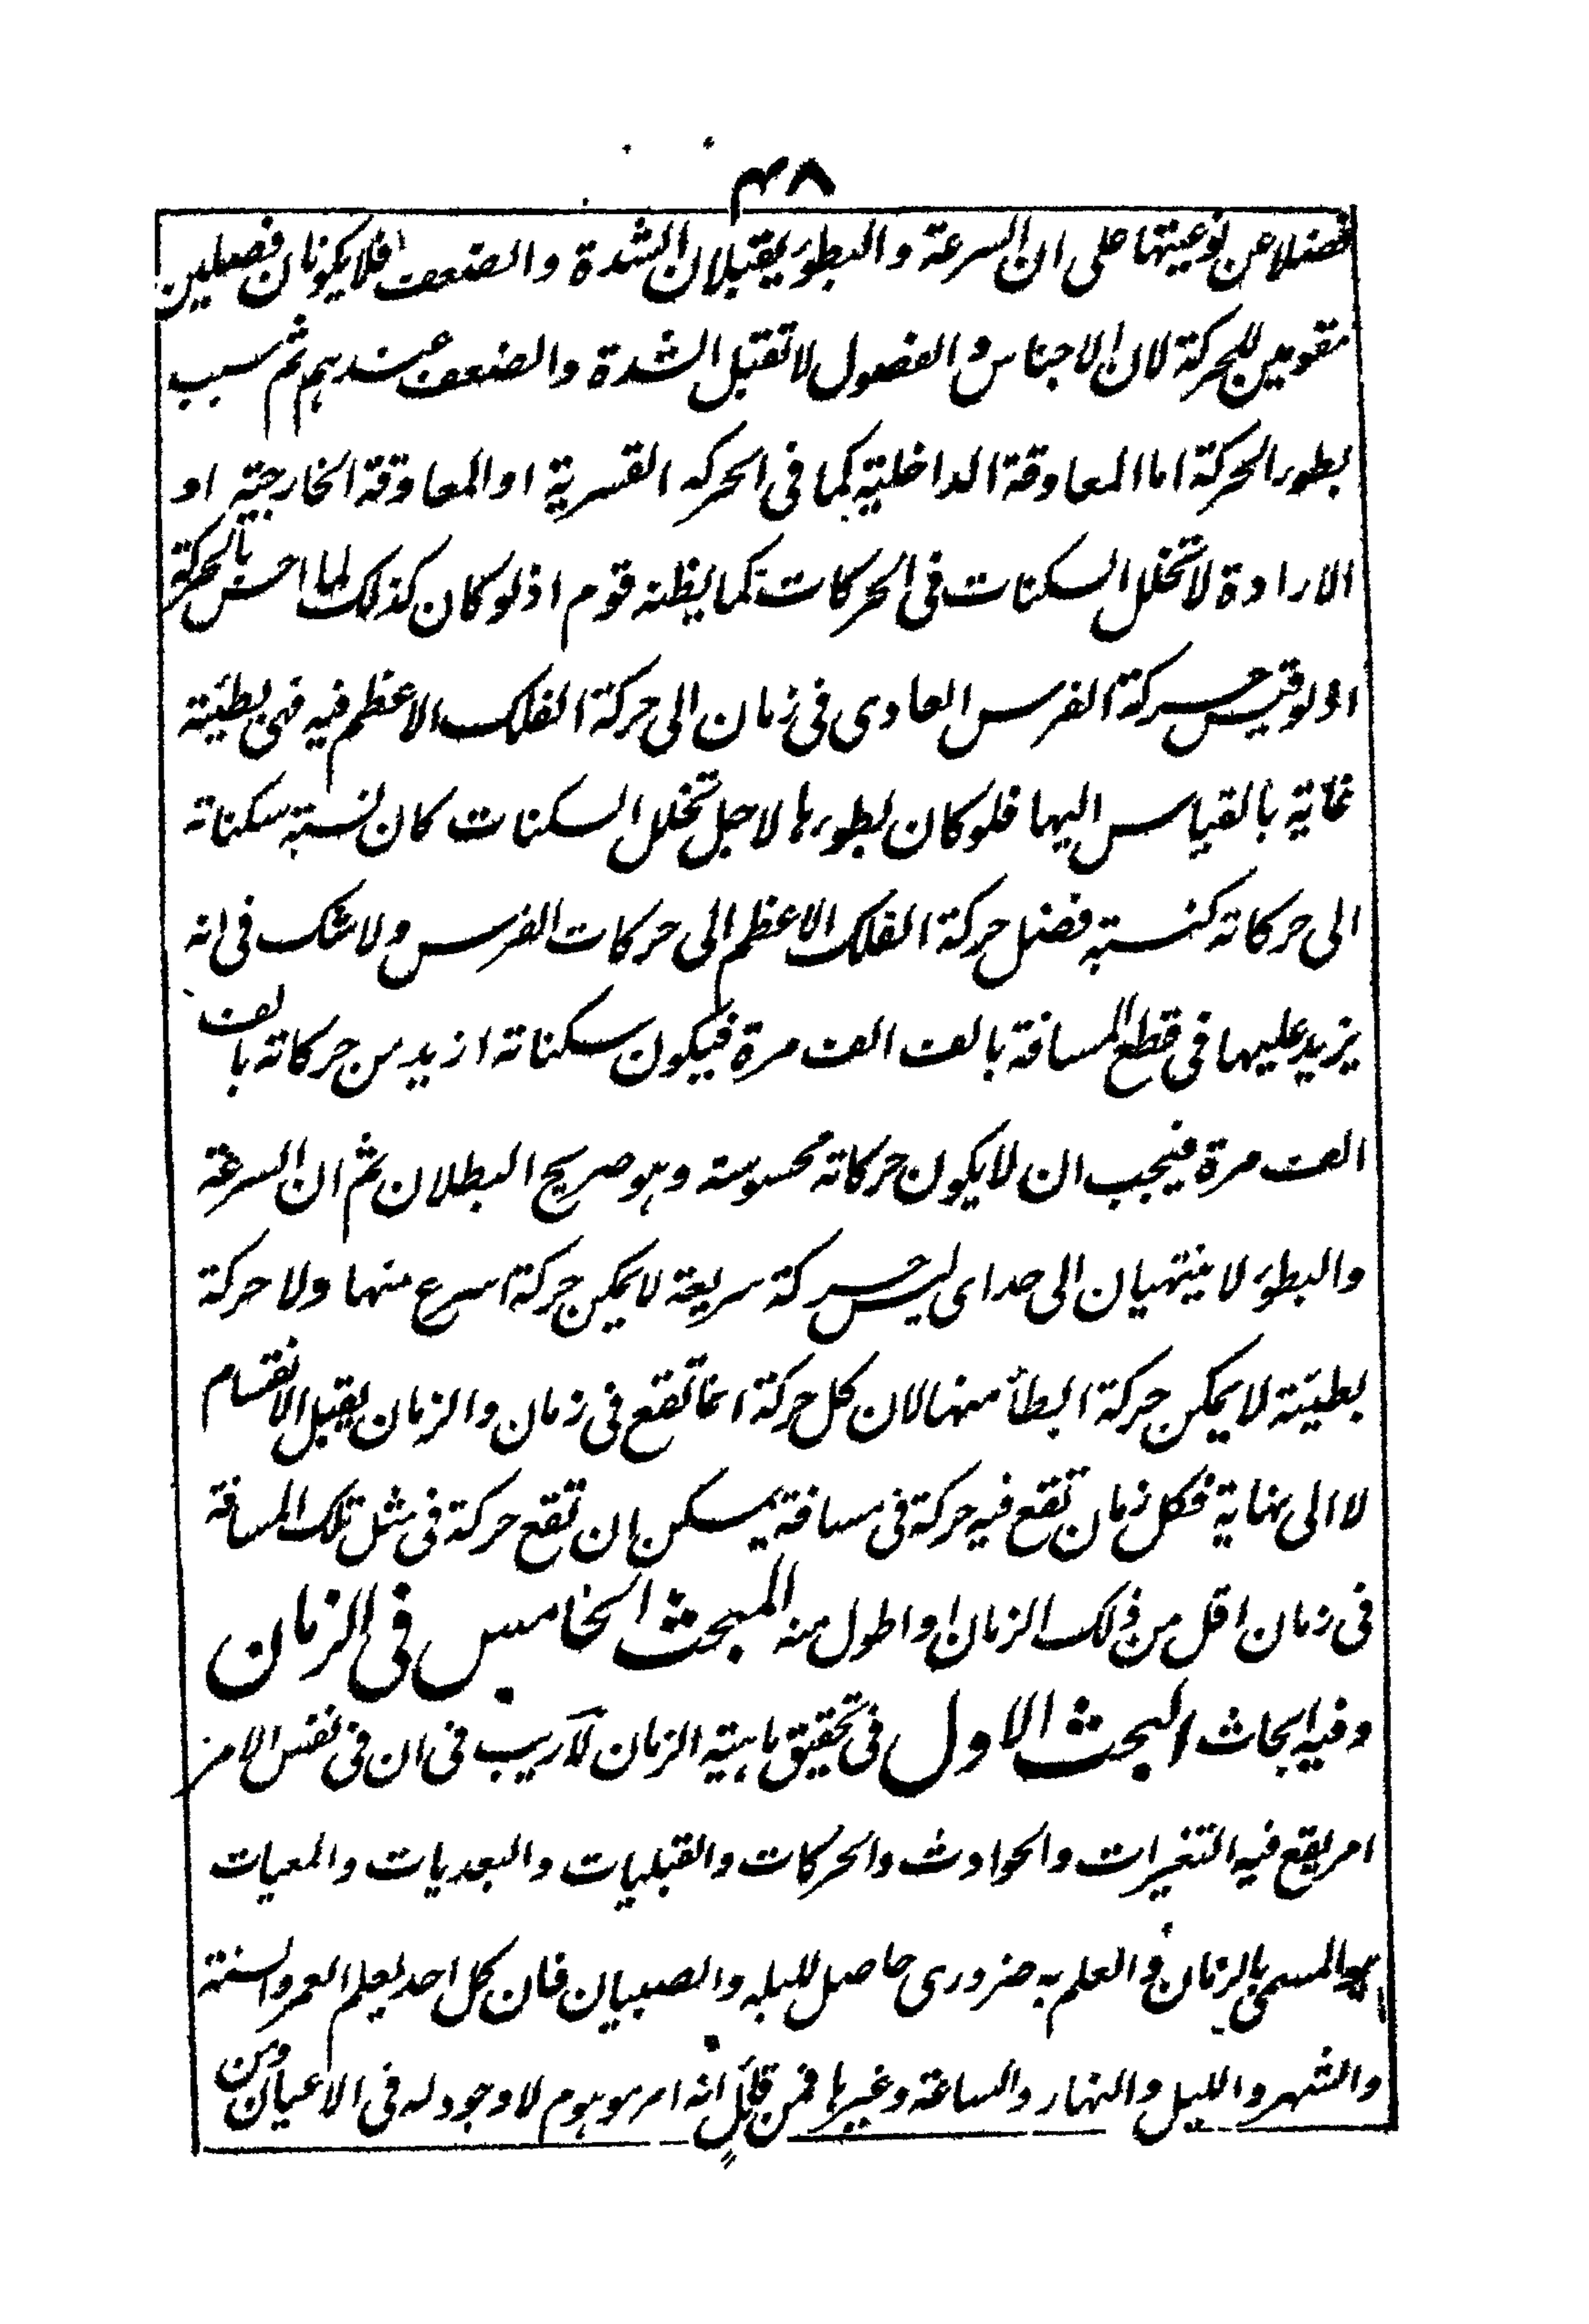 ۴۸
فضلا عن نوعيتها على ان السرعة والبطوء يقبلان الشدة والضعف فلا يكونان فصلين
مقومين للحركة لان الاجناس والفصول لا تقبل الشدة والضعف عندهم ثم سبب
بطور الحركة اما المعاوقة الداخلية كما فى الحركه القسرية او المعاوقة الخارجية او
الارادة لا تخلل السكنات فى الحركات كما يظنه قوم اذ لو كان كذلك لما احس بالحركة
اذ لو قيس حركة الفرس العادى فى زمان الى حركة الفلك الاعظم فيه فهى بطيئة
غاية بالقياس اليها فلو كان بطورها لاجل تخلل السكنات كان نسبة سكناته
الى حركاته كنسبة فضل حركة الفلك الاعظم الى حركات الفرس ولا شك فى انه
يزيد عليها فى قطع المسافة بالف الف مرة فيكون سكناته ازيد من حركاته بالف
الف مرة فيجب ان لا يكون حركاته محسوسة وهو صريح البطلان ثم ان السرعة
والبطوء لا ينتهيان الى حد اى ليس حركة سريعة لا يمكن حركة اسرع منها ولا حركة
بطيئة لا يمكن حركة ابطأ منها لان كل حركة انما تقع فى زمان والزمان يقبل الانقسام
لا الى نهاية فكل زمان تقع فيه حركة فى مسافة يمكن ان تقع حركة فى مثل تلك المسافة
فى زمان اقل من ذلك الزمان او اطول منه المبحث الخامس فى الزمان
وفيه ابحاث البحث الاول فى تحقيق ماهية الزمان لا ريب فى ان فى نفس الامر
امر يقع فيه التغيرات والحوادث والحركات والقبليات والبعديات والمعيات
وهو المسمى بالزمان والعلم به ضرورى حاصل للبله والصبيان فان كل احد يعلم العمر والسنة
والشهر والليل والنهار والساعة وغيرها فمن قائل انه امر موهوم لا وجود له فى الاعيان ومن